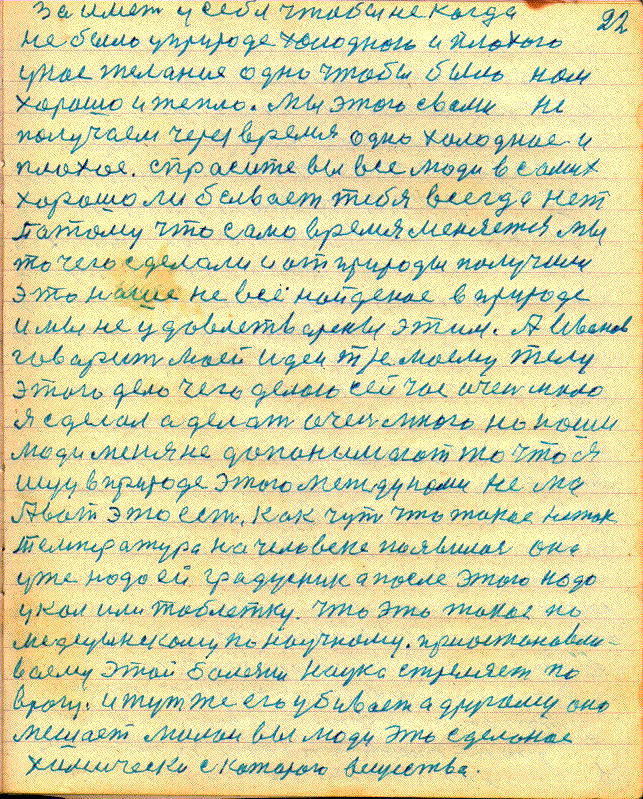 22
За имет у себя чтобы некогда
не было уприроде холодного и плохого
унас желание одно чтобы было нам
хорошо и тепло. Мы этого свами не
получаем через время одно холодное и
плохое. спрасите вы все люди всамих
хорошо ли бывает тебя всегда нет
патому что само время меняется мы
то чего сделали и от природы получили
это наше не всё найденое в природе
и мы не удовлетварены этим. А Иванов
говарит моей идеи моему телу
этого дело чего делаю сейчас очен мало
я сделал а делат очен много но наши
люди меня не допонимают то что я
ищу в природе этого между нами не ма
А вот это ест. Как чут что такое не так
температура на человеке появилас она
уже надо ей градусник а после этого надо
укол или таблетку. что это такое по
медецынскому по научному. приостановли-
ваему этой болезни наука стреляет по
врагу. и тут же его убивает а другому оно
мешает милаи вы люди это сделоное
химически с каторого вещества.